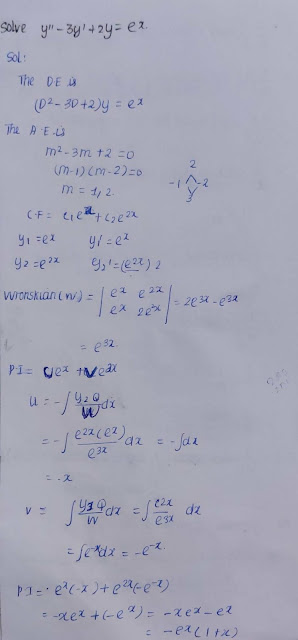 Solve y'' - 3y' + 2y = e^x
Sol:
The D.E is
(D² - 3D + 2)y = e^x
The A.E. is
m² - 3m + 2 = 0
(m-1)(m-2) = 0
m = 1, 2
2
-1 -2
3
C.F = c₁e^x + c₂e^2x
y₁ = e^x y₁' = e^x
y₂ = e^2x y₂' = (e^2x) 2
Wronskian(W) = | e^x e^2x | = 2e^3x - e^3x
| e^x 2e^2x |
= e^3x
P.I = Ue^x + Ve^2x
u = -∫ y₂Q/W dx
= -∫ e^2x(e^x)/e^3x dx = -∫dx
= -x
v = ∫ y₁Q/W dx = ∫ e^2x/e^3x dx
= ∫e^-x dx = -e^-x
P.I = e^x(-x) + e^2x(-e^-x)
= -xe^x + (-e^x) = -xe^x - e^x
= -e^x(1+x)